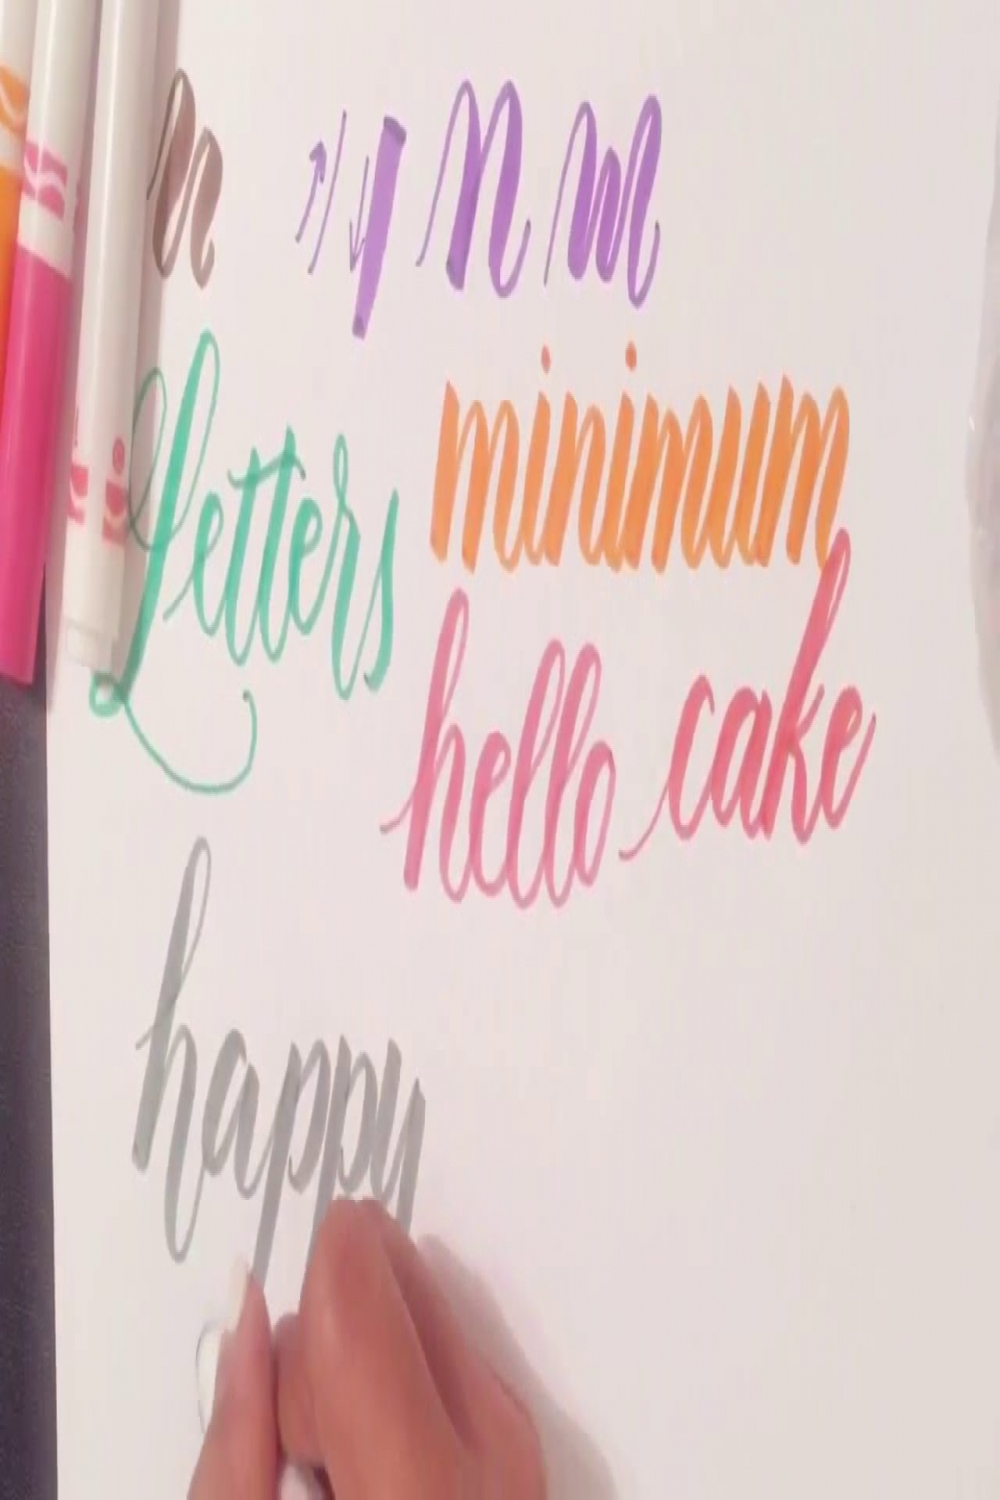 n n m
letters minimum
hello cake
happy